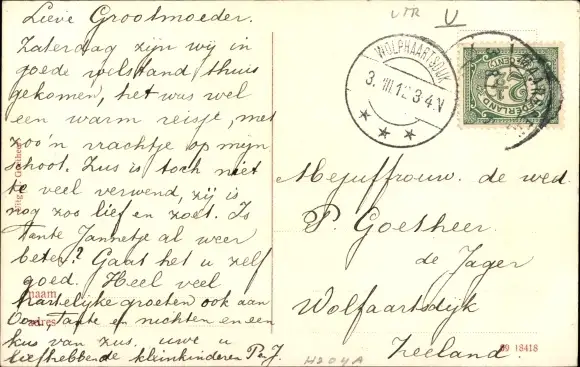 Lieve Grootmoeder.
Zaterdag zijn wij in
goede welstand thuis
gekomen, het was wel
een warm reisje, met
zoo'n vrachtje op mijn
schoot. Zus is toch niet
te veel verwend, zij is
nog zoo lief en zoet. Is
tante Jannetje al weer
beter? Gaat het u zelf
goed. Heel veel
hartelijke groeten ook aan
Oom, Tante en nichten en een
kus van zus. uwe u
liefhebbende kleinkinderen P en J.
naam
adres
LTR V
WOLPHAARTSDIJK
3. III 12 3-4.V
NEDERLAND
2½
Mejuffrouw. de wed.
P. Goetheer
de Jager
Wolfaartsdijk
Zeeland.
09 18418
H204A